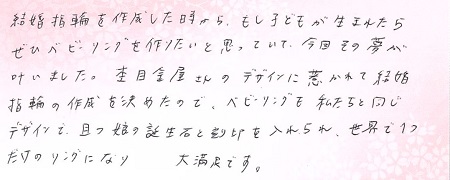 結婚指輪を作成した時から、もし子どもが生まれたら
ぜひベビーリングを作りたいと思っていて、今回その夢が
叶いました。杢目金屋さんのデザインに惹かれて結婚
指輪の作成を決めたので、ベビーリングも私たちと同じ
デザインで、且つ娘の誕生石と刻印を入れられ、世界で1つ
だけのリングになり 大満足です。